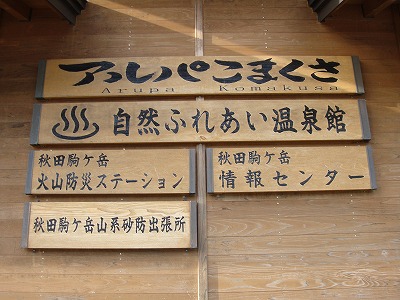 アルパこまくさ
Arupa Komakusa
♨自然ふれあい温泉館
秋田駒ケ岳
火山防災ステーション
秋田駒ケ岳
情報センター
秋田駒ケ岳山系砂防出張所